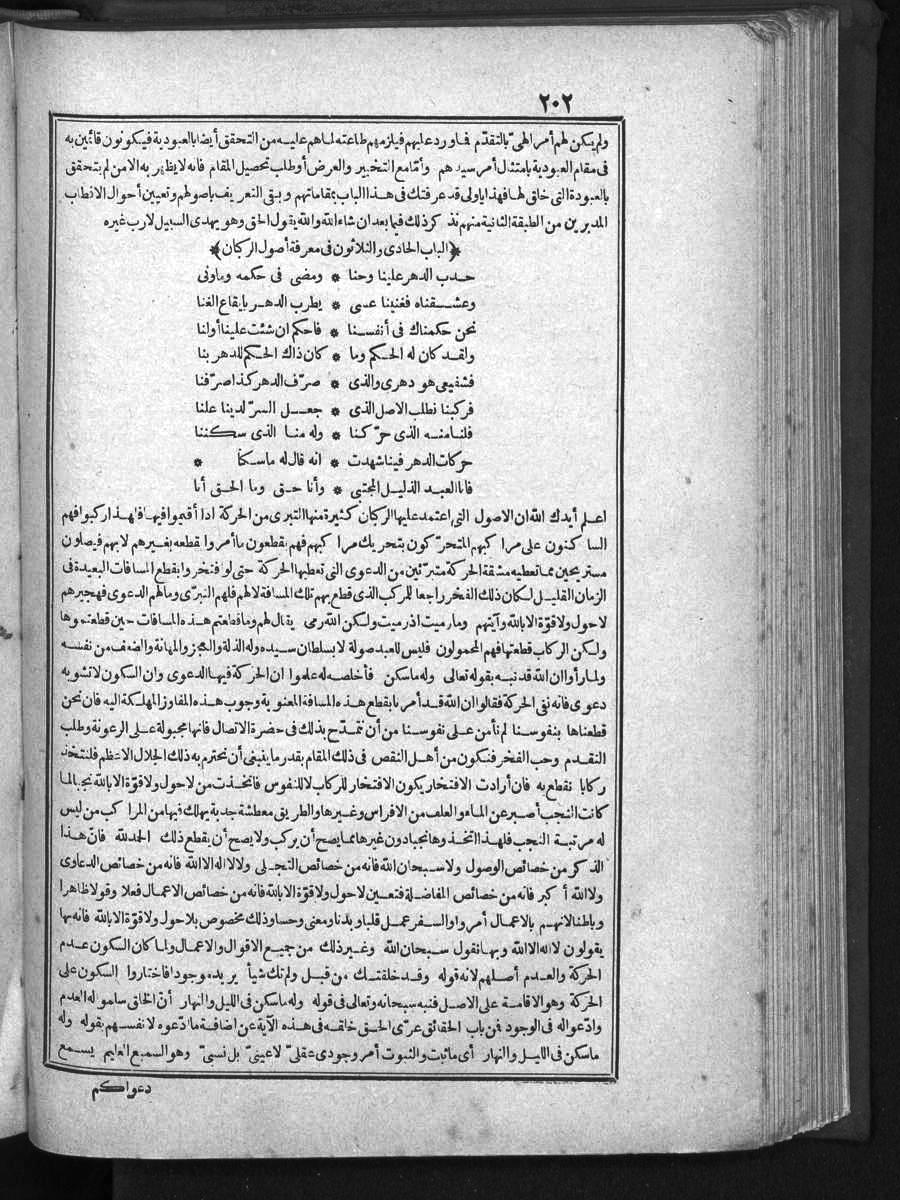 ٢٠٢
ولم يكن لهم أمر الهيّ بالتقدّم فما ورد عليهم فيلزمهم طاعته لما هم عليه من التحقق أيضا بالعبودية فيكونون قائمين به
فى مقام العبودية بامتثال أمر سيدهم وأما مع التخيير والعرض أو طلب تحصيل المقام فانه لا يظهر به الا من لم يتحقق
بالعبودة التى خلق لها فهذا يا ولى قد عرفتك فى هذا الباب بمقاماتهم وبقى التعريف باصولهم وتعيين أحوال الاقطاب
المدبرين من الطبقة الثانية منهم نذكر ذلك فيما بعد ان شاء الله والله يقول الحق وهو يهدى السبيل لا رب غيره
﴿الباب الحادى والثلاثون فى معرفة أصول الركبان﴾
حدب الدهر علينا وحنا * ومضى فى حكمه وما ونى
وعشقناه فغنينا عسى * يطرب الدهر بايقاع الغنا
نحن حكمناك فى أنفسنا * فاحكم ان شئت علينا أو لنا
ولقد كان له الحكم وما * كان ذاك الحكم للدهر بنا
فشفيعى هو دهرى والذى * صرّف الدهر كذا صرّفنا
فركبنا نطلب الاصل الذى * جعل السرّ لدينا علنا
فلنا منه الذى حرّكنا * وله منا الذى سكننا
حركات الدهر فينا شهدت * انه قال له ما سكنا *
فانا العبد الذليل المجتبى * وأنا حق وما الحق أنا
اعلم أيدك الله ان الاصول التى اعتمد عليها الركبان كثيرة منها التبرى من الحركة اذا أقيموا فيها فلهذا ركبوا فهم
الساكنون على مراكبهم المتحرّكون بتحريك مراكبهم فهم يقطعون ما أمروا بقطعه بغيرهم لا بهم فيصلون
مستريحين مما تعطيه مشقة الحركة متبرّئين من الدعوى التى تعطيها الحركة حتى لو افتخروا بقطع المسافات البعيدة فى
الزمان القليل لكان ذلك الفخر راجعا للمركب الذى قطع بهم تلك المسافة لا لهم فلهم التبرّى وما لهم الدعوى فهجيرهم
لا حول ولا قوّة الا بالله وآيتهم وما رميت اذ رميت ولكن الله رمى يقال لهم وما قطعتم هذه المسافات حين قطعتموها
ولكن الركاب قطعتها فهم المحمولون فليس للعبد صولة الا بسلطان سيده وله الذلة والعجز والمهانة والضعف من نفسه
ولما رأوا ان الله قد نبه بقوله تعالى وله ما سكن فأخلصه له علموا ان الحركة فيها الدعوى وان السكون لا تشوبه
دعوى فانه نفى الحركة فقالوا ان الله قد أمرنا بقطع هذه المسافة المعنوية وجوب هذه المفاوز المهلكة اليه فان نحن
قطعناها بنفوسنا لم نأمن على نفوسنا من أن نتمدّح بذلك فى حضرة الاتصال فانها مجبولة على الرعونة وطلب
التقدم وحب الفخر فنكون من أهل النقص فى ذلك المقام بقدر ما ينبغى أن نحترم به ذلك الجلال الاعظم فلنتخذ
ركابا نقطع به فان أرادت الافتخار يكون الافتخار للركاب لا للنفوس فاتخذت من لا حول ولا قوّة الا بالله نجبا لما
كانت النجب أصبر عن الماء والعلف من الافراس وغيرها والطريق معطشة جدبة يهلك فيها من المراكب من ليس
له مرتبة النجب فلهذا اتخذوها نجبا دون غيرها مما يصح أن يركب ولا يصح أن يقطع ذلك الحمد لله فانّ هذا
الذكر من خصائص الوصول ولا سبحان الله فانه من خصائص التجلى ولا لا اله الا الله فانه من خصائص الدعاوى
ولا الله أكبر فانه من خصائص المفاضلة فتعين لا حول ولا قوّة الا بالله فانه من خصائص الاعمال فعلا وقولا ظاهرا
وباطنا لانهم بالاعمال أمروا والسفر عمل قلبا وبدنا ومعنى وحسا وذلك مخصوص بلا حول ولا قوة الا بالله فانه بها
يقولون لا اله الا الله وبها نقول سبحان الله وغير ذلك من جميع الاقوال والاعمال ولما كان السكون عدم
الحركة والعدم أصلهم لانه قوله وقد خلقتك من قبل ولم تك شيأ يريد موجودا فاختاروا السكون على
الحركة وهو الاقامة على الاصل فنبه سبحانه وتعالى فى قوله وله ما سكن فى الليل والنهار أنّ الخلق سلموا له العدم
وادّعوا له فى الوجود فمن باب الحقائق عرّى الحق خلقه فى هذه الآية عن اضافة ما ادّعوه لانفسهم بقوله وله
ما سكن فى الليل والنهار أى ما ثبت والثبوت أمر وجودى عقلىّ لا عينىّ بل نسبىّ وهو السميع العليم يسمع
دعواكم